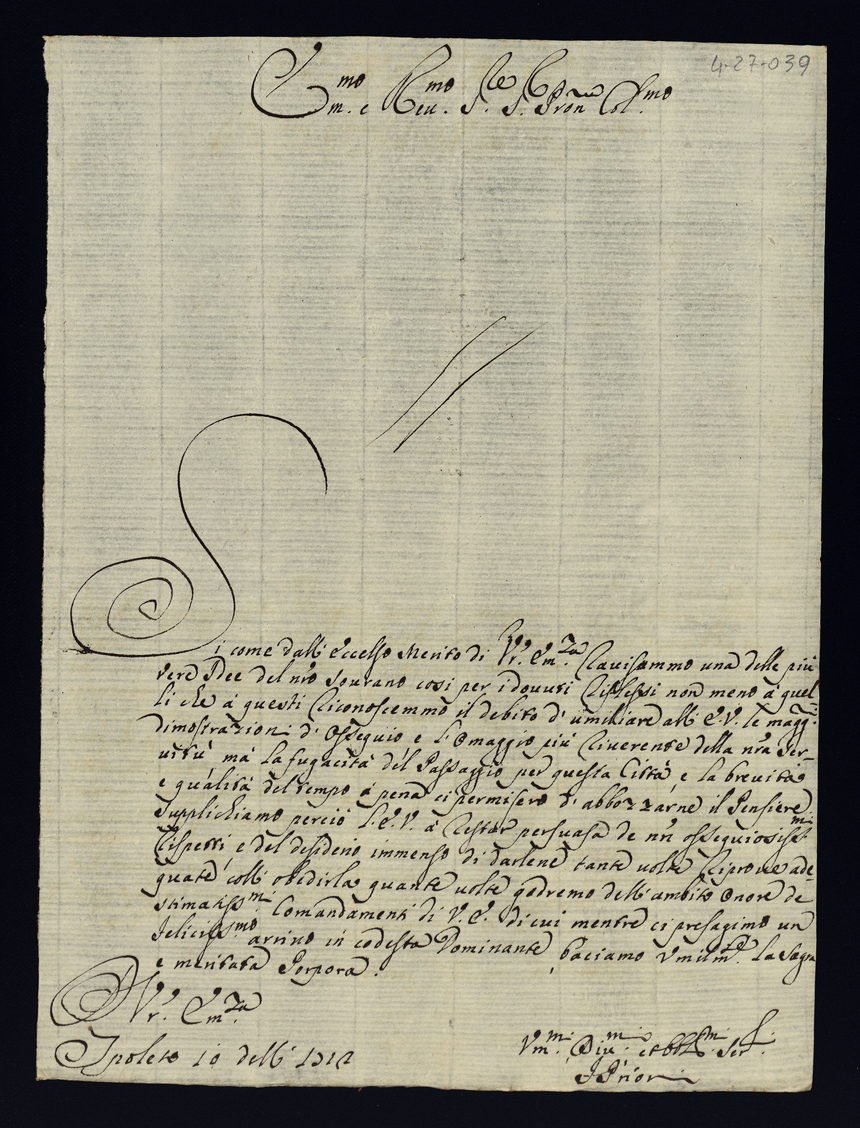 4-27-039
Em.mo e Reu.mo S.re S. Pron Col.mo
Si come dall' eccelso Merito di Vr. Em.za rauisammo una delle più
vere Idee del nro sourano cosi per i douuti riflessi non meno à quel
li che à questi riconoscemmo il debito d' umiliare all' E.V. le magg.i
dimostrazioni d' Ossequio e l' Omaggio più riuerente della nra Ser-
uitù mà la fugacità del Passaggio per questa Città, e la breuità
e qualità del tempo à pena ci permisero d' abbozzarne il Pensiere
Supplichiamo perciò l' E.V. à restar persuasa de nri ossequiosiss.mi
rispetti e del desiderio immenso di darlene tante uolte riproue ade
guate coll' obedirla quante uolte godremo dell' ambito onore de
stimatiss.mi Comandamenti di V.E. di cui mentre ci presagimo un
feliciss.mo arriuo in codesta Dominante, baciamo Vmilm.te la Sagra
e meritata Porpora.
Di Vr. Em.za
Spoleto 10 dell' 1712
Vm.mi Diu.mi et obbl.mi Ser.
I Priori